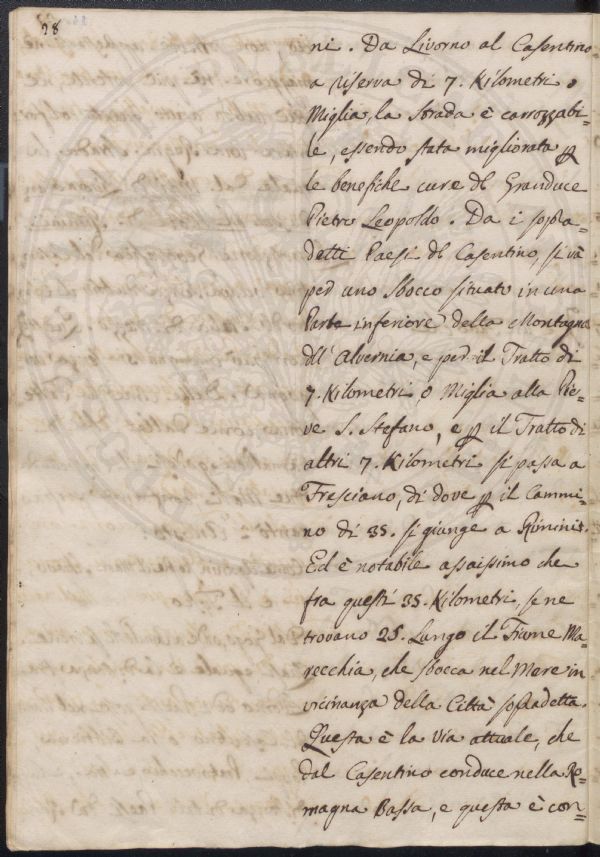 28
ni. Da Livorno al Casentino
a riserva di 7. Kilometri o
Miglia, la Strada è carrozzabi=
le, essendo stata migliorata p
le benefiche cure dl Granduce
Pietro Leopoldo. Da i sopra=
detti Paesi dl Casentino, si và
per uno sbocco situato in una
Parte inferiore della Montagna
dll' Alvernia, e per il Tratto di
7. Kilometri o Miglia alla Pie=
ve S. Stefano, e p il Tratto di
altri 7. Kilometri si passa a
Fresciano, di dove p il Cammi=
no di 35. si giunge a Rimini.
Ed è notabile assaissimo che
fra questi 35. Kilometri se ne
trovano 25. Lungo il Fiume Ma=
recchia, che sbocca nel Mare in
vicinanza della Città sopradetta.
Questa è la via attuale, che
dal Casentino conduce nella Ro=
magna Bassa, e questa è con=